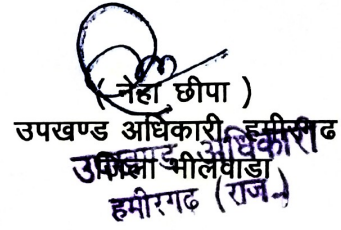 ( नेहा छीपा )
उपखण्ड अधिकारी, हमीरगढ
जिला भीलवाडा
उपखण्ड अधिकारी
हमीरगढ (राज.)